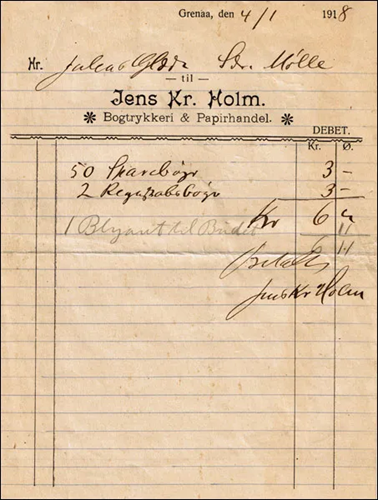 Grenaa, den 4/1 1918
Hr. Julius Sdr. Mølle
— til —
Jens Kr. Holm.
Bogtrykkeri & Papirhandel.
DEBET.
Kr. Ø.
50 Skarebøger 3 –
2 Regnskabsbøger 3 –
Kr 6 –
1 Blyant til Budet 11
6 11
betalt
Jens Kr Holm